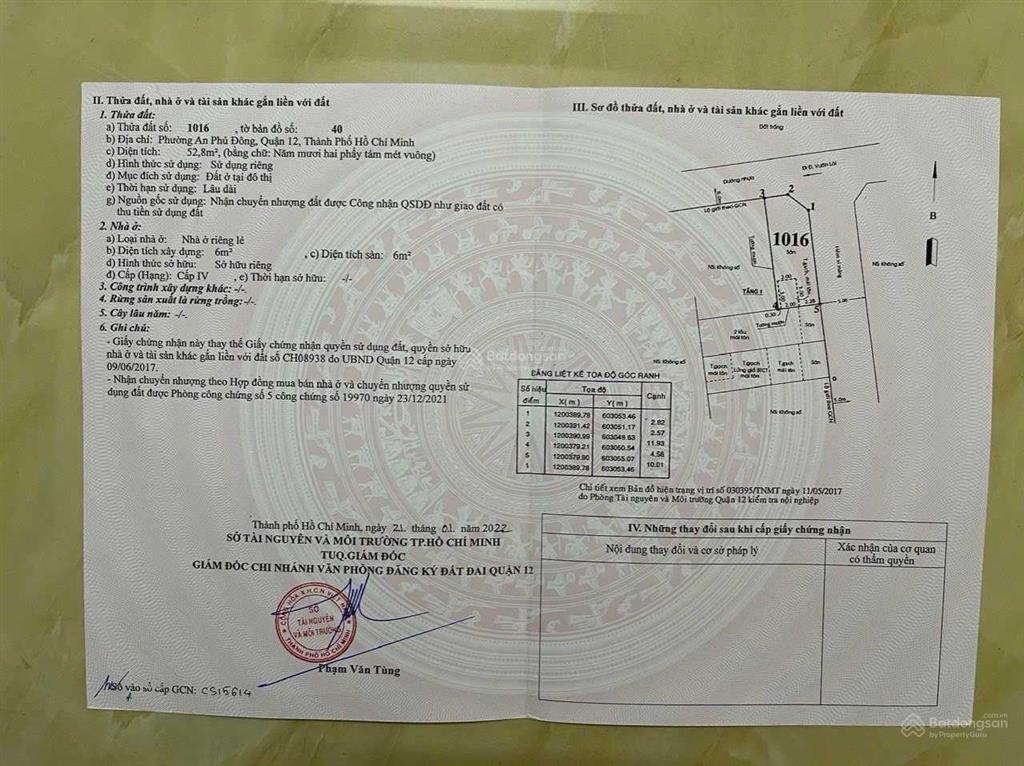 II. Thửa đất, nhà ở và tài sản khác gắn liền với đất
1. Thửa đất:
a) Thửa đất số: 1016 , tờ bản đồ số: 40
b) Địa chỉ: Phường An Phú Đông, Quận 12, Thành Phố Hồ Chí Minh
c) Diện tích: 52,8m², (bằng chữ: Năm mươi hai phẩy tám mét vuông)
d) Hình thức sử dụng: Sử dụng riêng
đ) Mục đích sử dụng: Đất ở tại đô thị
e) Thời hạn sử dụng: Lâu dài
g) Nguồn gốc sử dụng: Nhận chuyển nhượng đất được Công nhận QSDĐ như giao đất có
thu tiền sử dụng đất
2. Nhà ở:
a) Loại nhà ở: Nhà ở riêng lẻ
b) Diện tích xây dựng: 6m² , c) Diện tích sàn: 6m²
d) Hình thức sở hữu: Sở hữu riêng
đ) Cấp (Hạng): Cấp IV , e) Thời hạn sở hữu: -/-
3. Công trình xây dựng khác: -/-.
4. Rừng sản xuất là rừng trồng: -/-.
5. Cây lâu năm: -/-.
6. Ghi chú:
- Giấy chứng nhận này thay thế Giấy chứng nhận quyền sử dụng đất, quyền sở hữu
nhà ở và tài sản khác gắn liền với đất số CH08938 do UBND Quận 12 cấp ngày
09/06/2017.
- Nhận chuyển nhượng theo Hợp đồng mua bán nhà ở và chuyển nhượng quyền sử
dụng đất được Phòng công chứng số 5 công chứng số 19970 ngày 23/12/2021
Thành phố Hồ Chí Minh, ngày 21 tháng 01 năm 2022
SỞ TÀI NGUYÊN VÀ MÔI TRƯỜNG TP.HỒ CHÍ MINH
TUQ.GIÁM ĐỐC
GIÁM ĐỐC CHI NHÁNH VĂN PHÒNG ĐĂNG KÝ ĐẤT ĐAI QUẬN 12
CỘNG HÒA X.H.C.N VIỆT NAM
SỞ
TÀI NGUYÊN
VÀ MÔI TRƯỜNG
THÀNH PHỐ HỒ CHÍ MINH
Phạm Văn Tùng
Số vào sổ cấp GCN: CS15614
III. Sơ đồ thửa đất, nhà ở và tài sản khác gắn liền với đất
Đất trống
Đi Đ. Vườn Lài
Đường nhựa
Lộ giới theo GCN
3
2
1
B
1016
Sân
Tường mượn
T.gạch, mái tôn
Hẻm xi măng
NS: Không số
NS: Không số
TẦNG 1
2.00
3.00
4
2.00
2.28
5
0.30
Tường mượn
2 lầu
mái tôn
Sân
NS: Không số
T.gạch
mái tôn
T.gạch
Lửng giả BTCT
T.gạch
mái tôn
Sân
NS: Không số
Lộ giới theo GCN
BẢNG LIỆT KÊ TỌA ĐỘ GÓC RANH
Số hiệu điểm Tọa độ Cạnh
X( m ) Y( m )
1 1200389.78 603053.46
2.82
2 1200391.42 603051.17
2.57
3 1200390.99 603048.63
11.93
4 1200379.21 603050.54
4.58
5 1200379.90 603055.07
10.01
1 1200389.78 603053.46
Chi tiết xem Bản đồ hiện trạng vị trí số 030395/TNMT ngày 11/05/2017
do Phòng Tài nguyên và Môi trường Quận 12 kiểm tra nội nghiệp
IV. Những thay đổi sau khi cấp giấy chứng nhận
Nội dung thay đổi và cơ sở pháp lý
Xác nhận của cơ quan
có thẩm quyền
Batdongsan
Batdongsan.com.vn
by PropertyGuru